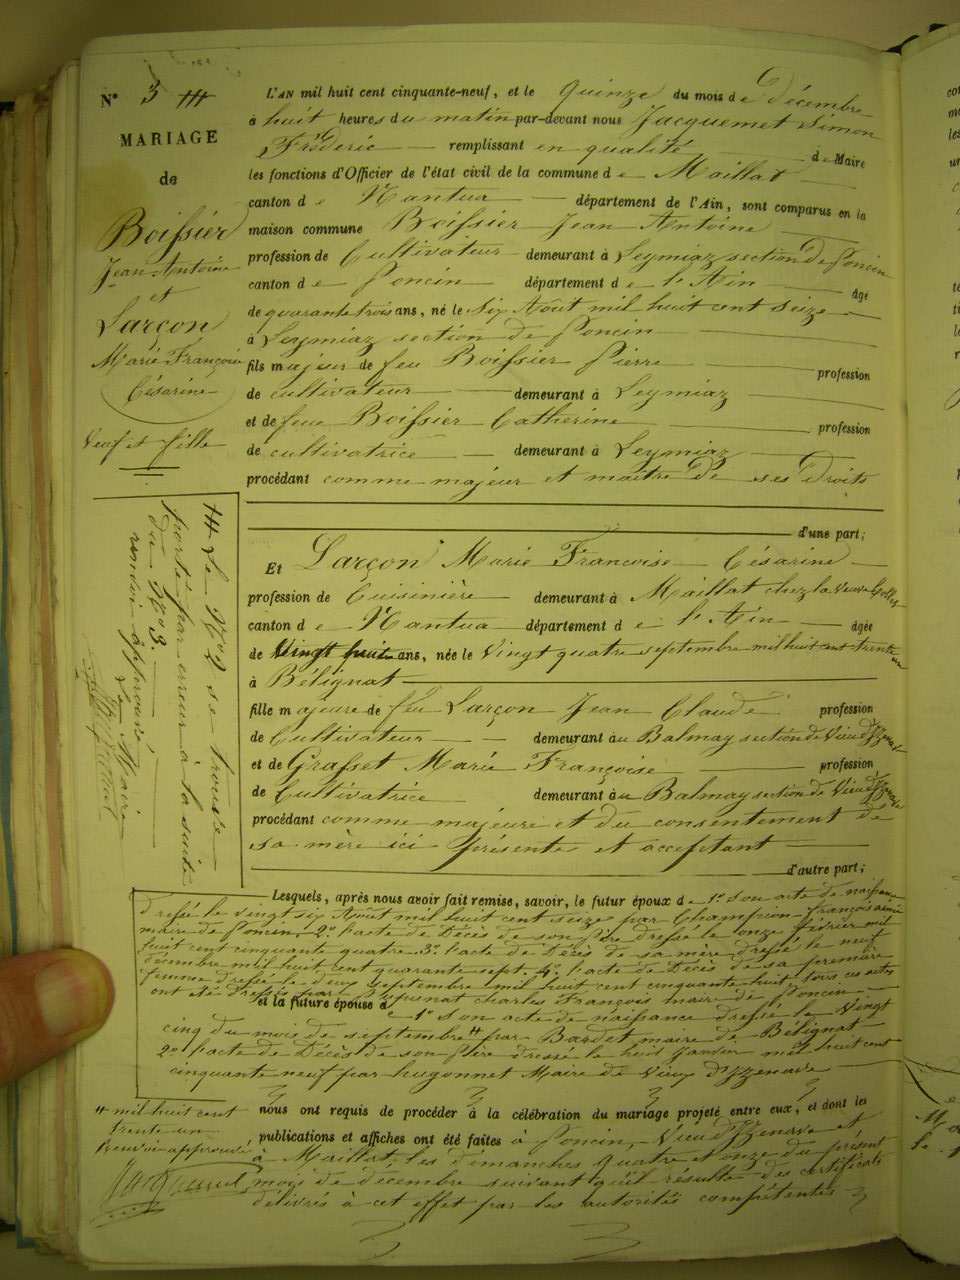 N° 3 ##
MARIAGE
de
Boissier
Jean-Antoine
et
Larçon
Marie Françoise
Césarine
Veuf et fille
## Le N° 2 se trouve
porté par erreur à la suite
du N° 3.
renvoi approuvé
Le Maire
L'AN mil huit cent cinquante-neuf, et le quinze du mois de Décembre
à huit heures du matin par-devant nous Jacquemet Simon
Fréderic remplissant en qualité de Maire
les fonctions d'Officier de l'état civil de la commune de Maillat
canton de Nantua département de l'Ain, sont comparus en la
maison commune Boissier Jean Antoine
profession de Cultivateur demeurant à Leymiaz section de Poncin
canton de Poncin département de l'Ain âgé
de quarante trois ans, né le Six Août mil huit cent seize
à Leymiaz section de Poncin
fils majeur de feu Boissier Pierre profession
de cultivateur demeurant à Leymiaz
et de feue Boissier Catherine profession
de cultivatrice demeurant à Leymiaz
procédant comme majeur et maître de ses Droits
d'une part;
Et Larçon Marie Francoise Césarine
profession de Cuisinière demeurant à Maillat chez la Veuve
canton de Nantua département de l'Ain âgée
de Vingt huit ans, née le Vingt quatre septembre mil huit cent trente un
à Bélignat
fille majeure de feu Larçon Jean Claude profession
de Cultivateur demeurant au Balmay section de Vieu d'Yzenave
et de Grasset Marie Françoise profession
de Cultivatrice demeurant au Balmay section de Vieu d'Yzenave
procédant comme majeure et du consentement de
sa mère ici présente et acceptant
d'autre part;
Lesquels, après nous avoir fait remise, savoir, le futur époux de 1° son acte de naissance
dressé le vingt six Août mil huit cent seize par Champion François
maire de Poncin; 2° l'acte de Décès de son père dressé le onze février mil
huit cent cinquante quatre 3° l'acte de Décès de sa mère dressé le neuf
décembre mil huit cent quarante sept. 4° l'acte de Décès de sa première
femme dressé le deux Septembre mil huit cent cinquante huit, tous ces actes
ont été dressés par charles François maire de Poncin
et la future épouse de 1° son acte de naissance dressé le Vingt
cinq du mois de septembre # par Bardet maire de Bélignat
2° l'acte de Décès de son père dressé le huit Janvier mil huit cent
cinquante neuf par hugonnet Maire de Vieu d'Yzenave
nous ont requis de procéder à la célébration du mariage projeté entre eux, et dont les
publications et affiches ont été faites à Poncin, Vieu d'Yzenave et
à Maillat, les dimanches quatre et onze du présent
mois de décembre suivant qu'il résulte des certificats
délivrés à cet effet par les autorités compétentes
# mil huit cent
trente un
renvoi approuvé
Jacquemet